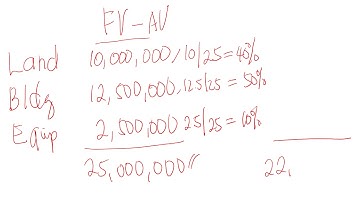 FV-AV
Land 10,000,000, 10/25=40%
Bldg 12,500,000, 125/25=50%
Equip 2,500,000 25/25=10%
25,000,000 22,